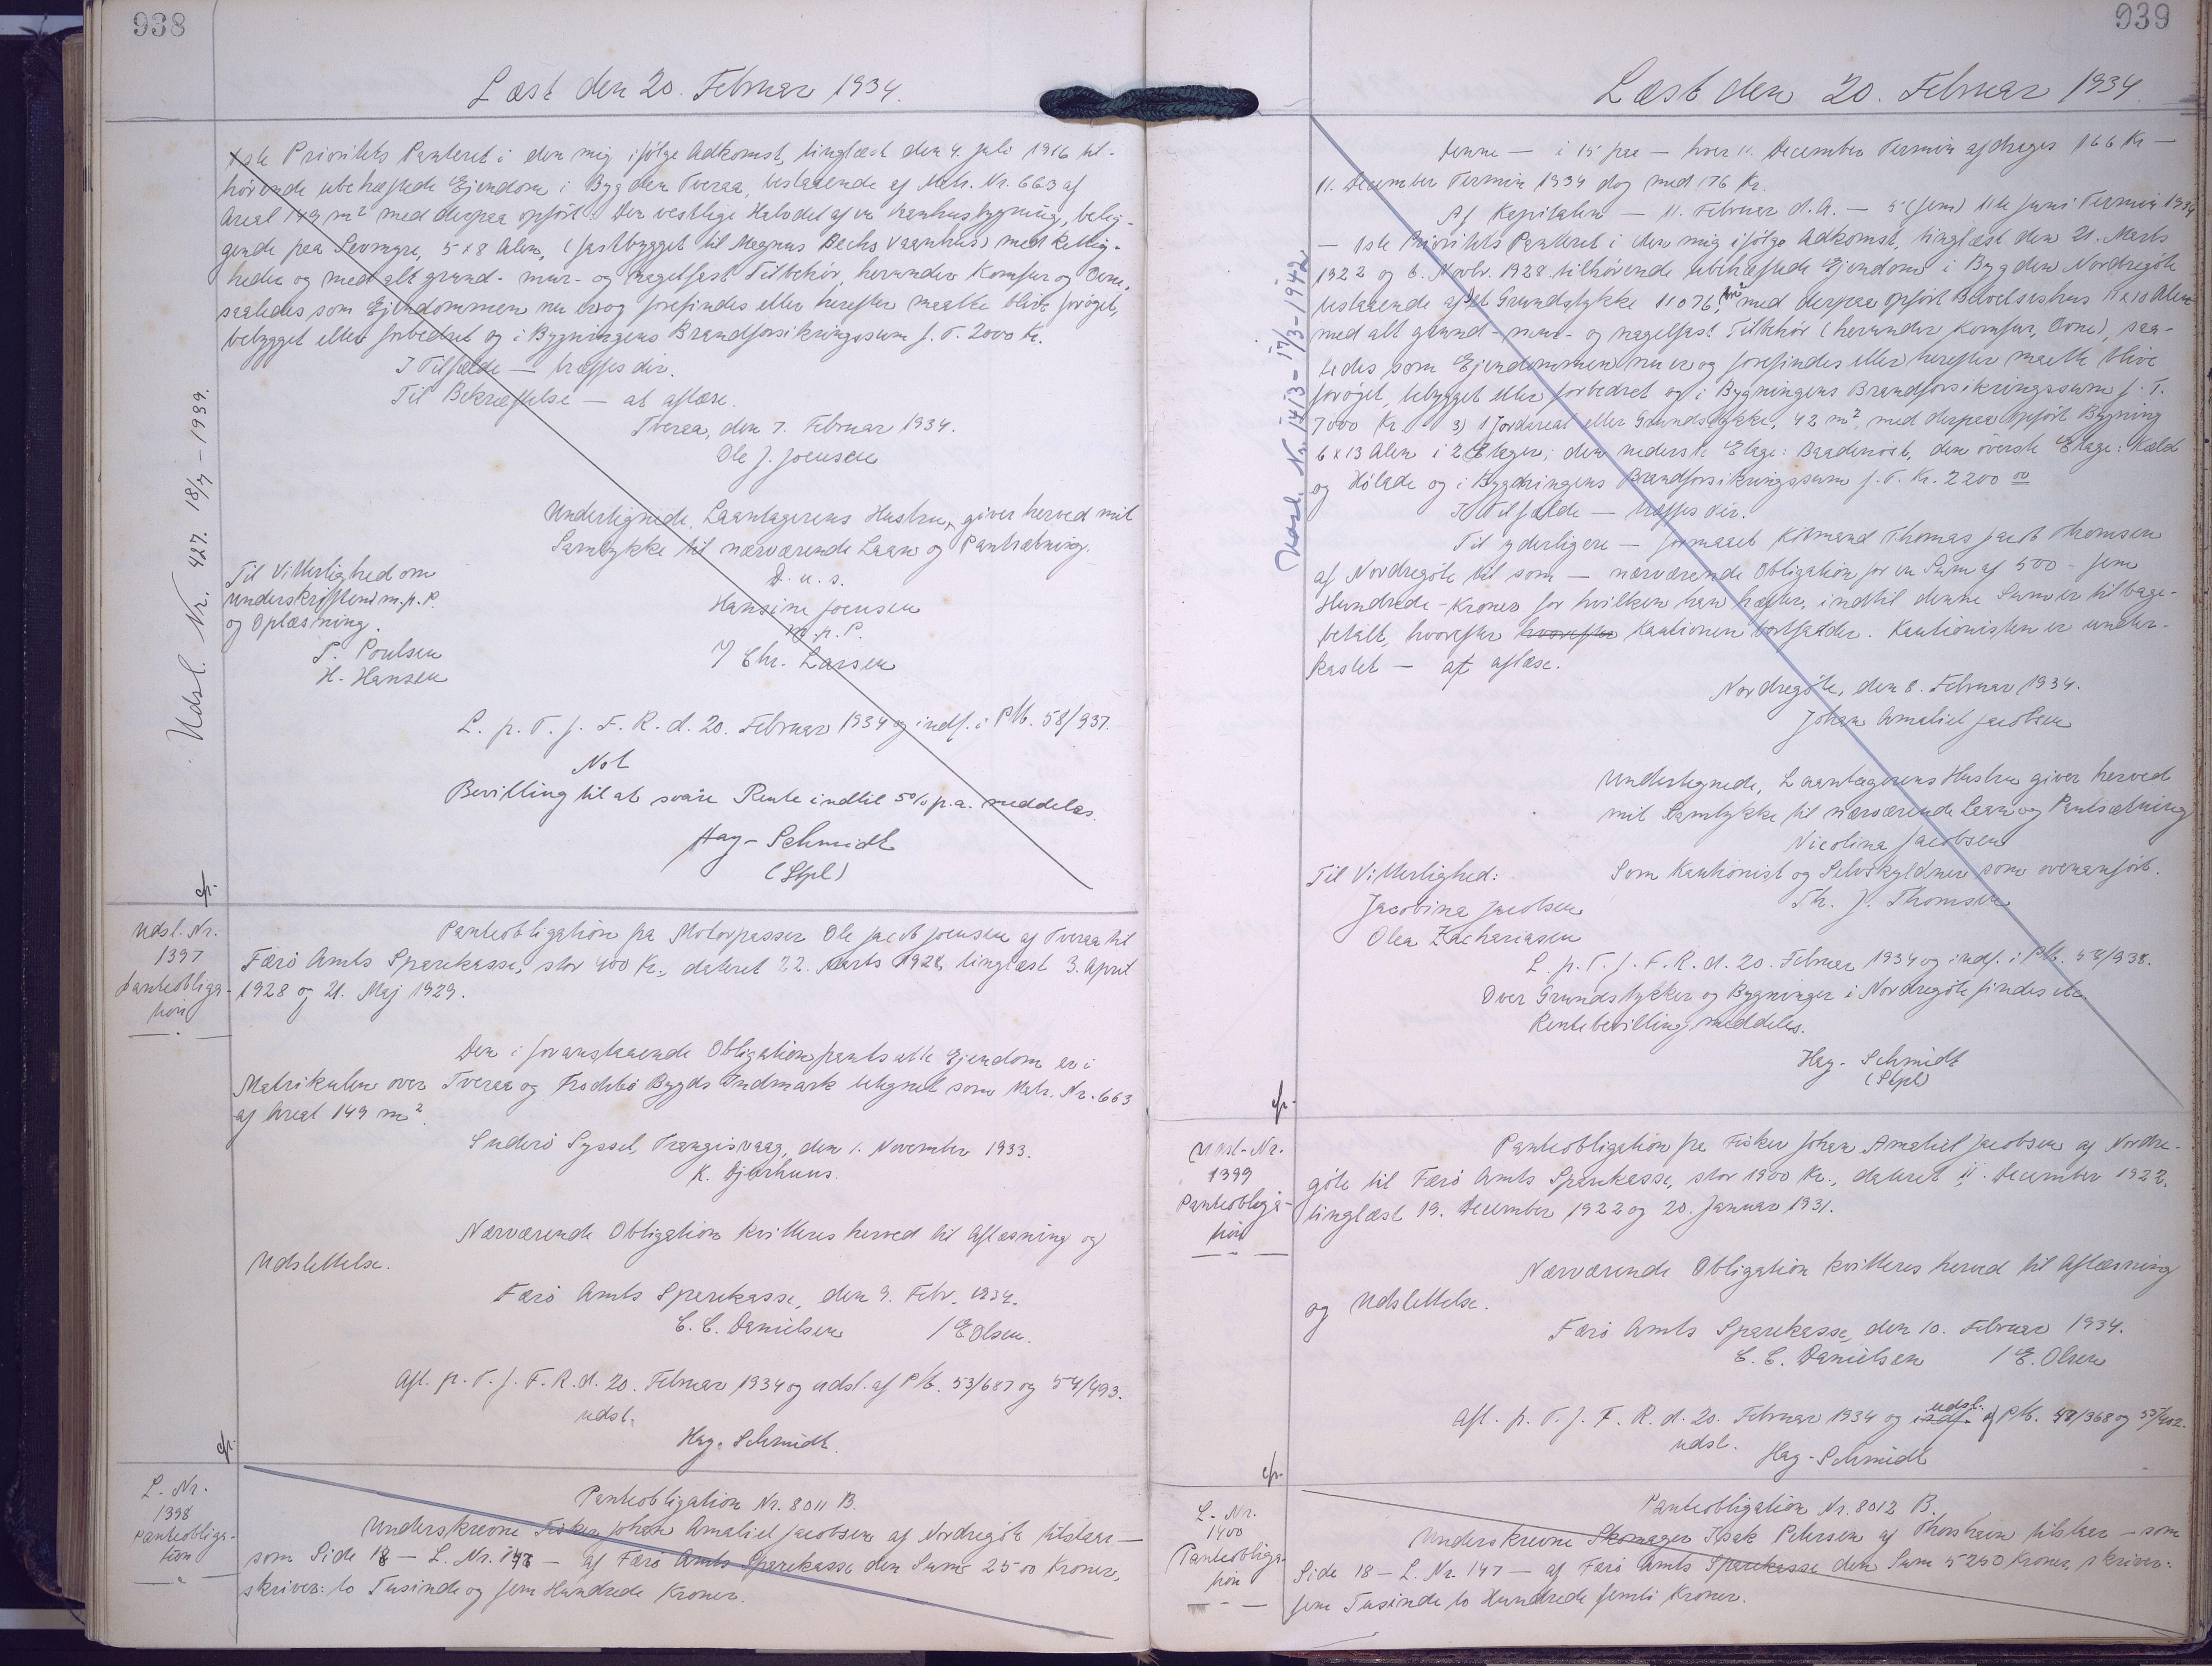 938
Læst den 20. Februar 1934.
1ste Prioritets Panteret i den mig ifölge Adkomst, tinglæst den 4. Juli 1916 til-
hörende ubehæftede Ejendom i Bygden Tveraa, bestaaende af Matr. Nr. 663 af
Areal 149 m² med derpaa opfört: Den vestlige Halvdel af en Vaanhusbygning, belig-
gende paa Sevmyre, 5 x 8 Alen, (fastbygget til Magnus Bechs Vaanhus) med Rettig-
heder og med alt grund- mur- og nagelfast Tilbehör, herunder Komfur og Ovne,
saaledes som Ejendommen nu er og forefindes eller herefter maatte blive foröget,
bebygget eller forbedret og i Bygningens Brandforsikringssum f. T. 2000 Kr.
I Tilfælde — træffes dér.
Til Bekræftelse — at aflæse.
Tveraa, den 7. Februar 1934.
Ole J. Joensen
Undertegnede, Laantagerens Hustru, giver herved mit
Samtykke til nærværende Laan og Pantsætning.
D. u. s.
Hansine Joensen
m. p. P.
J Chr. Larsen
Til Vitterlighed om
Underskriften m. p. P.
og Oplæsning.
P. Poulsen
H. Hansen
L. p. T. f. F. R. d. 20. Februar 1934 og indf. i PM. 58/937.
Not
Bevilling til at svare Rente indtil 5% p.a. meddeles.
Hay-Schmidt
(Stpl)
Udsl. Nr. 427. 18/7 - 1939.
cfr.
Udsl. Nr.
1397
Panteobliga-
tion
Panteobligation fra Motorpasser Ole Jacob Joensen af Tveraa til
Færö Amts Sparekasse, stor 400 Kr., dateret 22. Marts 1928, tinglæst 3. April
1928 og 21. Maj 1929.
Den i foranstaaende Obligation pantsatte Ejendom er i
Matrikulen over Tveraa og Frodebö Bygds Indmark betegnet som Matr. Nr. 663
af Areal 149 m².
Suderö Syssel, Trangisvaag, den 1. November 1933.
K. Djurhuus.
Nærværende Obligation kvitteres herved til Aflæsning og
Udslettelse.
Færö Amts Sparekasse, den 9. Febr. 1934.
C. C. Danielsen / E Olsen.
Afl. p. T. f. F. R. d. 20. Februar 1934 og udsl. af PM. 53/687 og 54/493.
udsl.
Hay-Schmidt.
cfr.
L. Nr.
1398
Panteobliga-
tion
Panteobligation Nr. 8011 B.
Underskrevne Fisker Johan Amaliel Jacobsen af Nordregöte tilstaar —
som Side 18 — L. Nr. 147 — af Færö Amts Sparekasse den Sum 2500 Kroner,
skriver: to Tusinde og fem Hundrede Kroner.
939
Læst den 20. Februar 1934.
Denne — i 15 paa — hver 11. December Termin afdrages 166 Kr —
11. December Termin 1934 dog med 176 Kr.
Af Kapitalen — 11. Februar d. A. — 5 (fem) 11te Juni Termin 1934
— 1ste Prioritets Panteret i den mig ifölge Adkomst, tinglæst den 21. Marts
1922 og 6. Novbr. 1928 tilhörende ubehæftede Ejendom i Bygden Nordregöte
bestaaende af et Grundstykke 11076, m² med derpaa opfört Beboelseshus 11 x 10 Alen
med alt grund- mur- og nagelfast Tilbehör (herunder Komfur, Ovne), saa-
ledes som Ejendommen nu er og forefindes eller herefter maatte blive
foröget, bebygget eller forbedret og i Bygningens Brandforsikringssum f. T.
7000 Kr. 3) 1 Jordareal eller Grundstykke, 42 m², med derpaa opfört Bygning
6 x 13 Alen i 2 Etager; den nederste Etage: Baadenöst, den överste Etage: Kæld
og Hölade og i Bygningens Brandforsikringssum f. T. Kr. 2200 00
I Tilfælde — træffes dér.
Til yderligere — formaaet Köbmand Thomas Jacob Thomsen
af Nordregöte til som — nærværende Obligation for en Sum af 500 - fem
Hundrede - Kroner for hvilken han hæfter, indtil denne Sum er tilbage-
betalt, hvorefter hvorefter Kautionen bortfalder. Kautionisten er under-
kastet — at aflæse.
Nordregöte, den 8. Februar 1934.
Johan Amaliel Jacobsen
Undertegnede, Laantagerens Hustru giver herved
mit Samtykke til nærværende Laan og Pantsætning
Nicolina Jacobsen
Som Kautionist og Selvskyldner som ovenanfört.
Th. J. Thomsen
Til Vitterlighed:
Jacobina Jacobsen
Olea Zachariasen
L. p. T. f. F. R. d. 20. Februar 1934 og indf. i PM. 58/938.
Over Grundstykker og Bygninger i Nordregöte findes ...
Rentebevilling meddeles.
Hay-Schmidt
(Stpl)
Udsl. Nr. 1413 - 17/3 - 1942.
cfr.
Udsl.-Nr.
1399
Panteobliga-
tion
Panteobligation fra Fisker Johan Amaliel Jacobsen af Nordre-
göte til Færö Amts Sparekasse, stor 1900 Kr., dateret 11. December 1922,
tinglæst 19. December 1922 og 20. Januar 1931.
Nærværende Obligation kvitteres herved til Aflæsning
og Udslettelse.
Færö Amts Sparekasse, den 10. Februar 1934.
C. C. Danielsen / E. Olsen
Afl. p. T. f. F. R. d. 20. Februar 1934 og indf. udsl. af PM. 48/368 og 55/402.
udsl.
Hay-Schmidt
cfr.
L. Nr.
1400
Panteobliga-
tion
Panteobligation Nr. 8012 B.
Underskrevne Skomager Isak Petersen af Thorshavn tilstaar — som
Side 18 — L. Nr. 147 — af Færö Amts Sparekasse den Sum 5250 Kroner, skriver:
fem Tusinde to Hundrede femti Kroner.